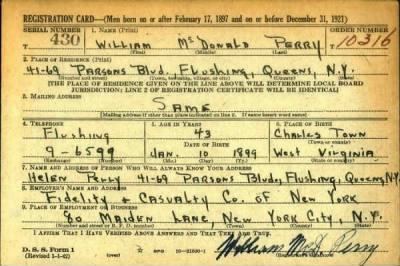 REGISTRATION CARD—(Men born on or after February 17, 1897 and on or before December 31, 1921)
SERIAL NUMBER 1. NAME (Print) ORDER NUMBER
T 430 WILLIAM McDONALD PERRY 10316
(First) (Middle) (Last)
2. PLACE OF RESIDENCE (Print)
41-69 PARSONS Blvd. Flushing, Queens, N.Y.
(Number and street) (Town, township, village, or city) (County) (State)
[THE PLACE OF RESIDENCE GIVEN ON THE LINE ABOVE WILL DETERMINE LOCAL BOARD
JURISDICTION; LINE 2 OF REGISTRATION CERTIFICATE WILL BE IDENTICAL]
3. MAILING ADDRESS
SAME
[Mailing address if other than place indicated on line 2. If same insert word same]
4. TELEPHONE 5. AGE IN YEARS 6. PLACE OF BIRTH
Flushing 43 Charles Town
DATE OF BIRTH (Town or county)
9-6599 JAN. 10 1899 West Virginia
(Exchange) (Number) (Mo.) (Day) (Yr.) (State or country)
7. NAME AND ADDRESS OF PERSON WHO WILL ALWAYS KNOW YOUR ADDRESS
Helen Perry 41-69 PARSONS Blvd, Flushing, Queens, N.Y.
8. EMPLOYER'S NAME AND ADDRESS
Fidelity + Casualty Co. of New York
9. PLACE OF EMPLOYMENT OR BUSINESS
80 Maiden Lane, New York City, N.Y.
(Number and street or R. F. D. number) (Town) (County) (State)
I AFFIRM THAT I HAVE VERIFIED ABOVE ANSWERS AND THAT THEY ARE TRUE.
D. S. S. Form 1
(Revised 1-1-42) (over) William McD Perry